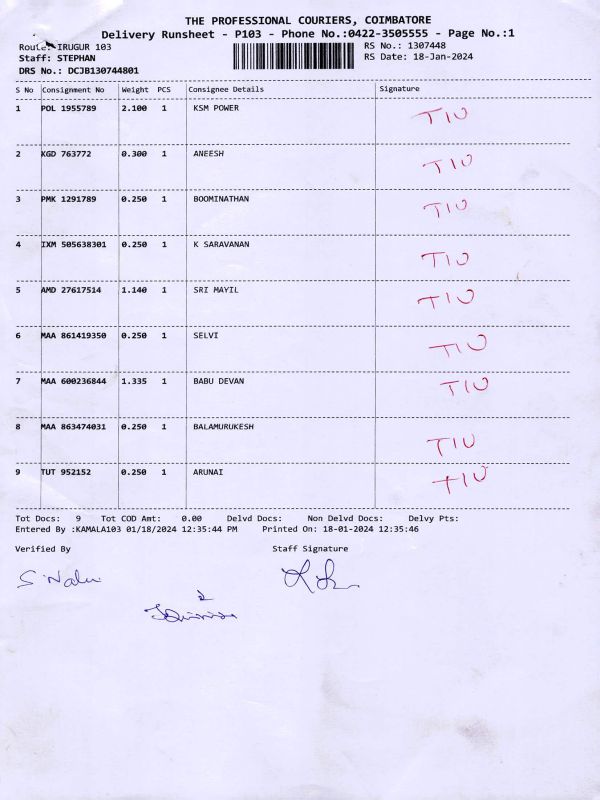 THE PROFESSIONAL COURIERS, COIMBATORE
Delivery Runsheet - P103 - Phone No.:0422-3505555 - Page No.:1
Route: IRUGUR 103 RS No.: 1307448
Staff: STEPHAN RS Date: 18-Jan-2024
DRS No.: DCJB130744801
S No Consignment No Weight PCS Consignee Details Signature
1 POL 1955789 2.100 1 KSM POWER TIU
2 KGD 763772 0.300 1 ANEESH TIU
3 PMK 1291789 0.250 1 BOOMINATHAN TIU
4 IXM 505638301 0.250 1 K SARAVANAN TIU
5 AMD 27617514 1.140 1 SRI MAYIL TIU
6 MAA 861419350 0.250 1 SELVI TIU
7 MAA 600236844 1.335 1 BABU DEVAN TIU
8 MAA 863474031 0.250 1 BALAMURUKESH TIU
9 TUT 952152 0.250 1 ARUNAI TIU
Tot Docs: 9 Tot COD Amt: 0.00 Delvd Docs: Non Delvd Docs: Delvy Pts:
Entered By :KAMALA103 01/18/2024 12:35:44 PM Printed On: 18-01-2024 12:35:46
Verified By Staff Signature